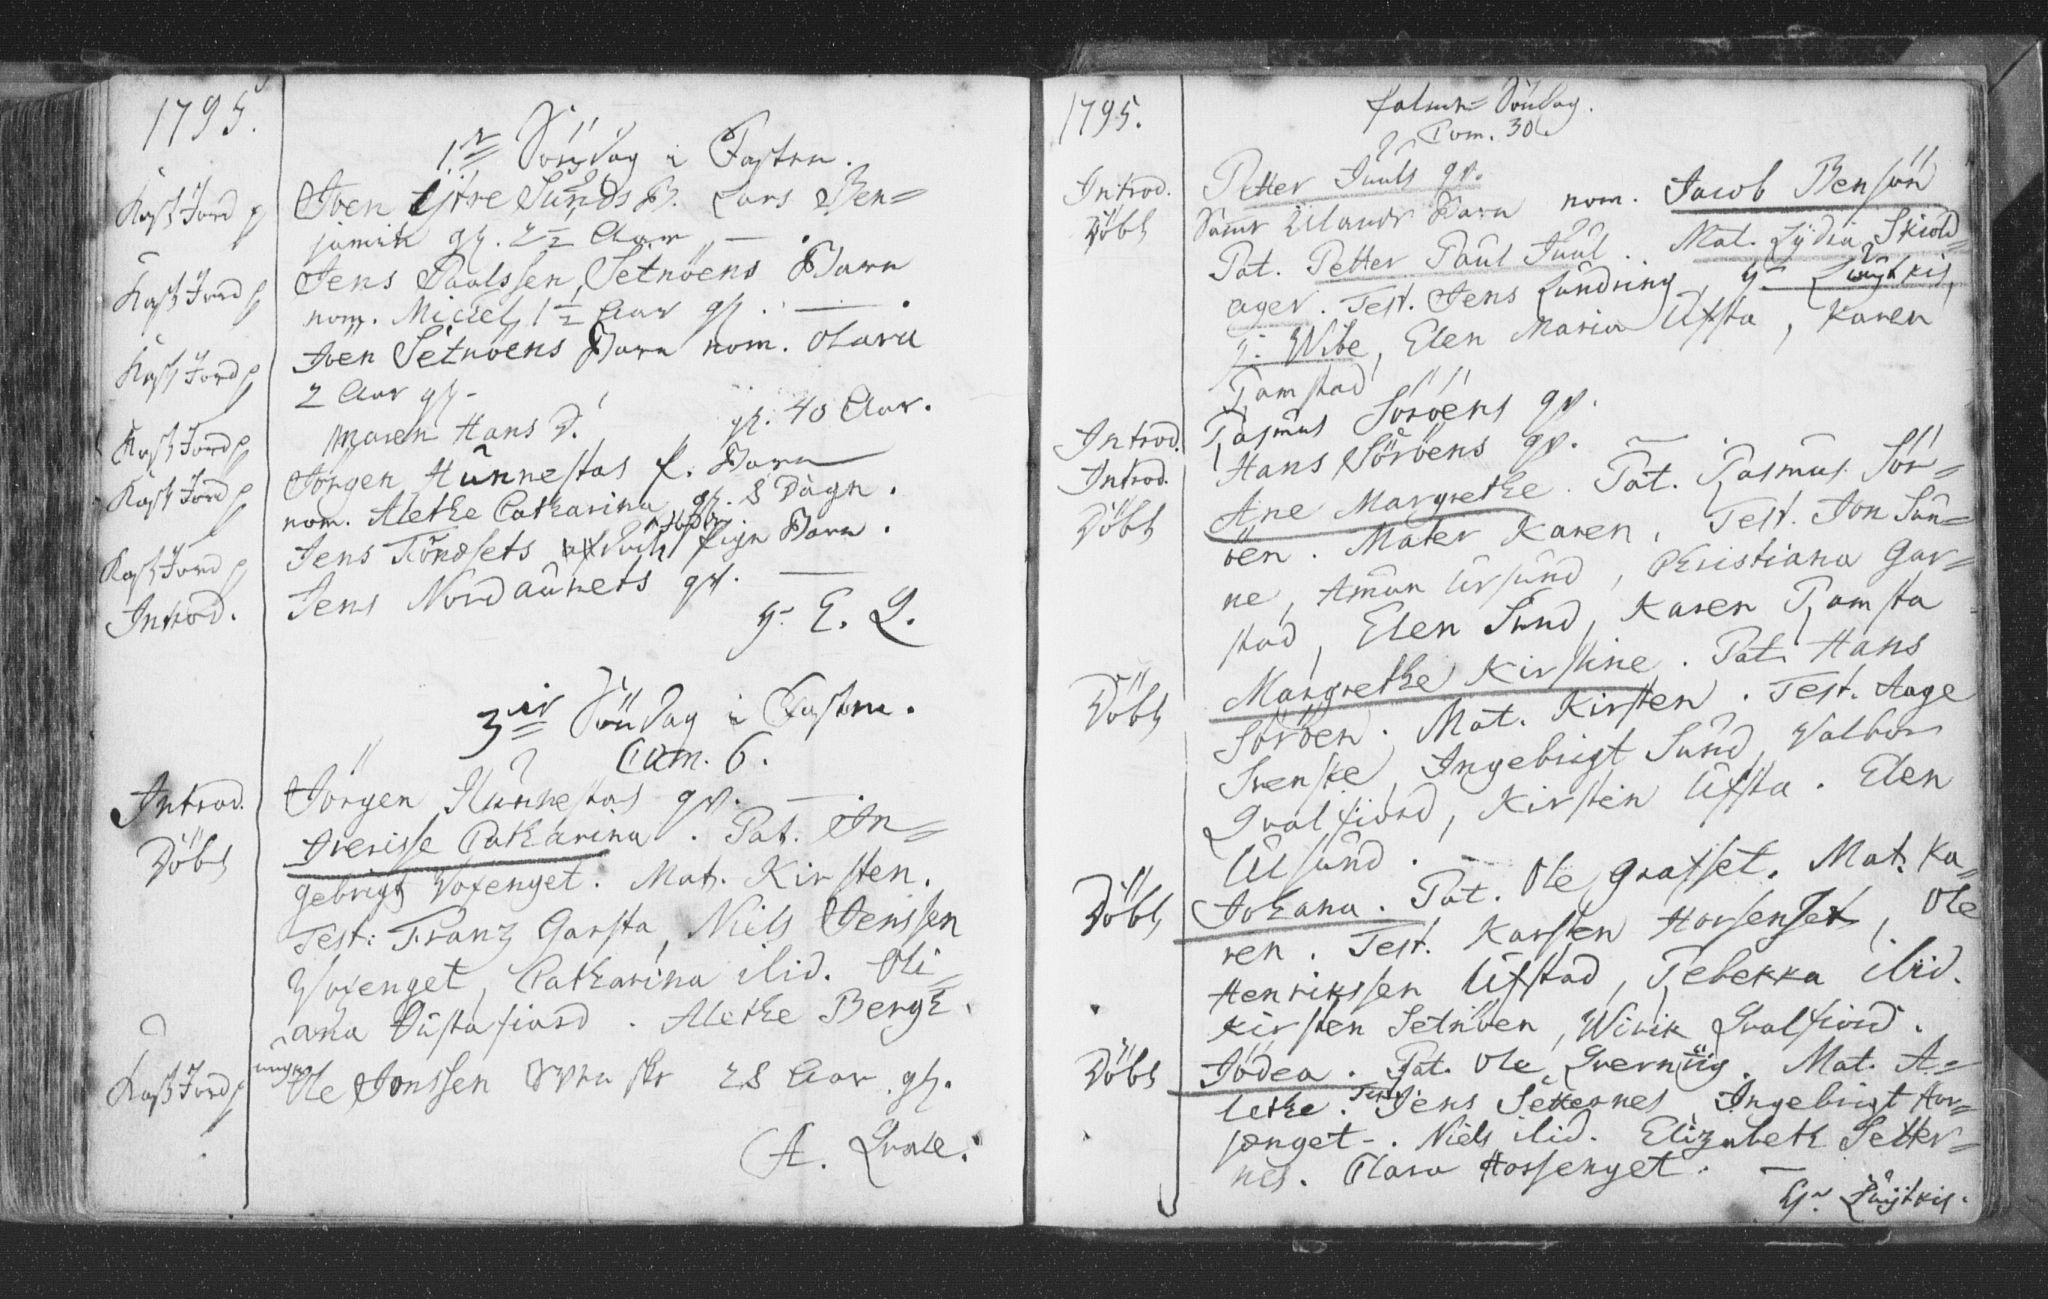 1795.
1ste Söndag i Fasten.
Kast Jord p Iven Ytre Sunds B. Lars Ben=
jamin gl. 2½ Aar
Kast Jord p Jens Paulssen Setnöens Barn
nom. Mickel 1½ Aar gl.
Kast Jord p Iven Setnöens Barn nom. Olava
2 Aar gl.
Kast Jord p Maren Hans D. gl. 40 Aar.
Kast Jord p Jörgen Hunnestas f. Barn
nom. Alethe Catharina gl. 8 Dagn.
Kast Jord p Jens Töndsets Barn.
Introd. Jens Nordaunets qv.
Hr E. Q.
3die Söndag i Fasten.
Com. 6.
Introd. Jörgen Hunnestas qv.
Döbt Iverisse Catharina. Pat. In=
gebrigt Voxenget. Mat. Kirsten.
Test: Franz Garsta, Niels Jenssen
Voxenget, Catharina ibid. Oli=
ana Dustafiord. Alethe Bergh.
Kast Jord p ungk. Ole Jonssen Svensk 28 Aar gl.
A. Qvale.
1795.
Palme=Söndag.
Com. 30.
Introd. Petter Juuls qv.
Döbt Samt Barn nom. Jacob Bensön
Pat. Petter Paul Juul. Mat. Lydia Skiold=
ager. Test. Jens Lundring, Hr Luytkis,
J. Wibe, Elen Maria Ufsta, Karen
Ramstad
Introd. Rasmus Söröens qv.
Introd. Hans Söröens qv.
Döbt Ane Margrethe. Pat. Rasmus Sör=
öen. Mater Karen. Test. Jon Sun=
ne, Amun Ursund, Christiana Gar=
stad, Elen Sund, Karen Ramsta
Döbt Margrethe Kirstine. Pat. Hans
Söröen. Mat. Kirsten. Test. Aage
Svenske, Ingebrigt Sund, Valbor
Qvalfiord, Kirsten Ufsta. Elen
Ulsund.
Döbt Johana. Pat. Ole Gratset. Mat. Ka=
ren. Test. Karsten Horsenget, Ole
Henrikssen Ufstad, Rebekka ibid.
Kirsten Setnöen, Wivik Qvalfiord.
Döbt Jödea. Pat. Ole Qvernüg. Mat. A=
lethe. Test. Jens Setternes, Ingebrigt Hor=
senget. Niels ibid. Elizabeth Setter=
nes. Clara Hossenget.
Hr Luytkis.